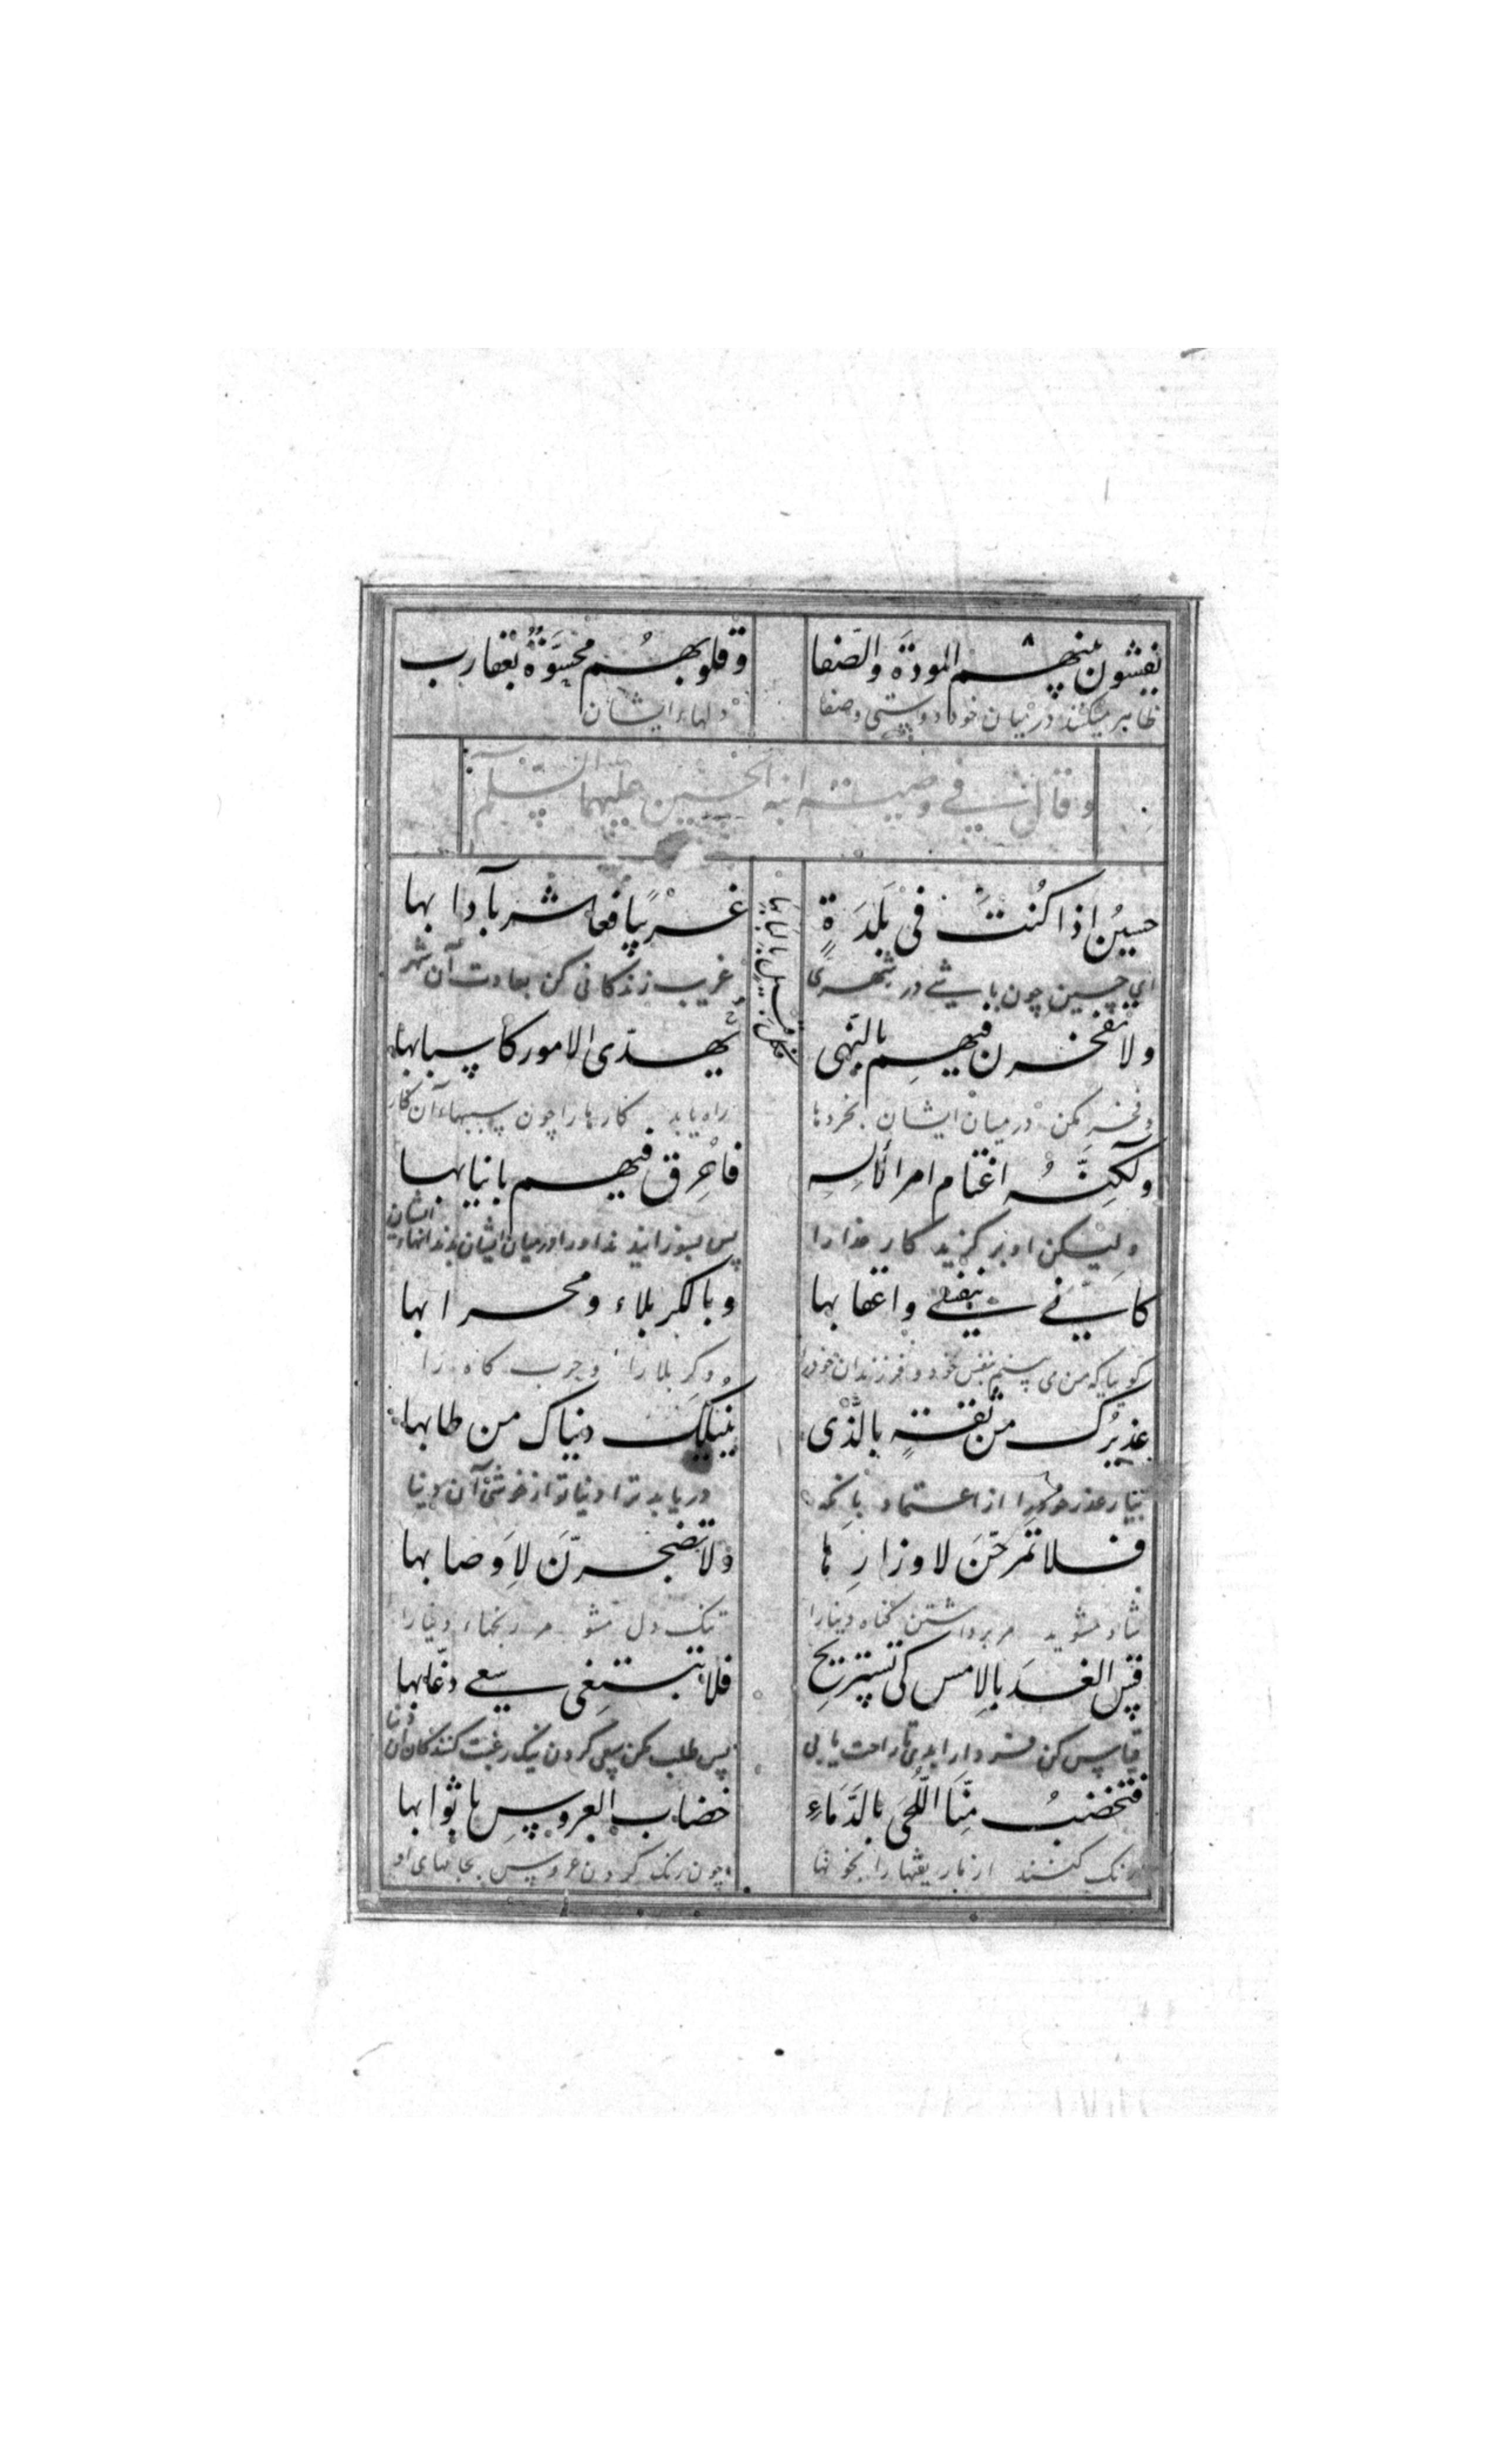 یفشون بینهم المودة والصفا وقلوبهم محشوّة بعقارب
ظاهر میکنند در میان خود دوستی وصفا دلهاء ایشان
وقال فے وصیته ابنه الحسین علیهما السّلام
حسینُ اذا کُنتَ فی بَلدَةٍ غریبًا فعاشر بآدابها
ای حسین چون باشے در شهری غریب زندکانی کن بعادت آن شهر
ولا تفخرن فیهِم بالنّهی یهدّی الامور کاسبابها
وفخر مکن در میان ایشان بخردها راه یابد کارها را چون سببهاء آن کار
ولکنّهُ اغتام امر الالهِ فاحرق فیهم بانیابها
ولیکن او برکزید کار خدا را پس بسوزانید او را در میان ایشان بدندانهاء ایشان
کانّے بنفسے واعقابها وبالکربلاء ومحرابها
کویا که من می بینم بنفس خود وفرزندان خود را وکربلا را وحرب کاه را
عذیرک من ثقةٍ بالذی ینیلک دنیاک من طابها
بیار عذر خود را از اعتماد بآنکه در یابد ترا دنیا تو از خوشی آن دنیا
فلا تمرحَنّ لاوزارِها ولا تضجرنّ لِاَوصابها
شاد مشوید مر برداشتن کناه دنیا را تنک دل مشو مر رنجهاء دنیا را
قِس الغد بالامس کی تستریح فلا تبتغی سعے رغّابها
قیاس کن فردا را بدی تا راحت یابی پس طلب مکن سعی کردن نیک رغبت کنندکان آن دنیا
فتخضبُ منّا اللّحی بالدّماءِ خضاب العروسِ باثوابها
رنک کنند از ما ریشها را بخونها چون رنک کردن عروس بجامهای او